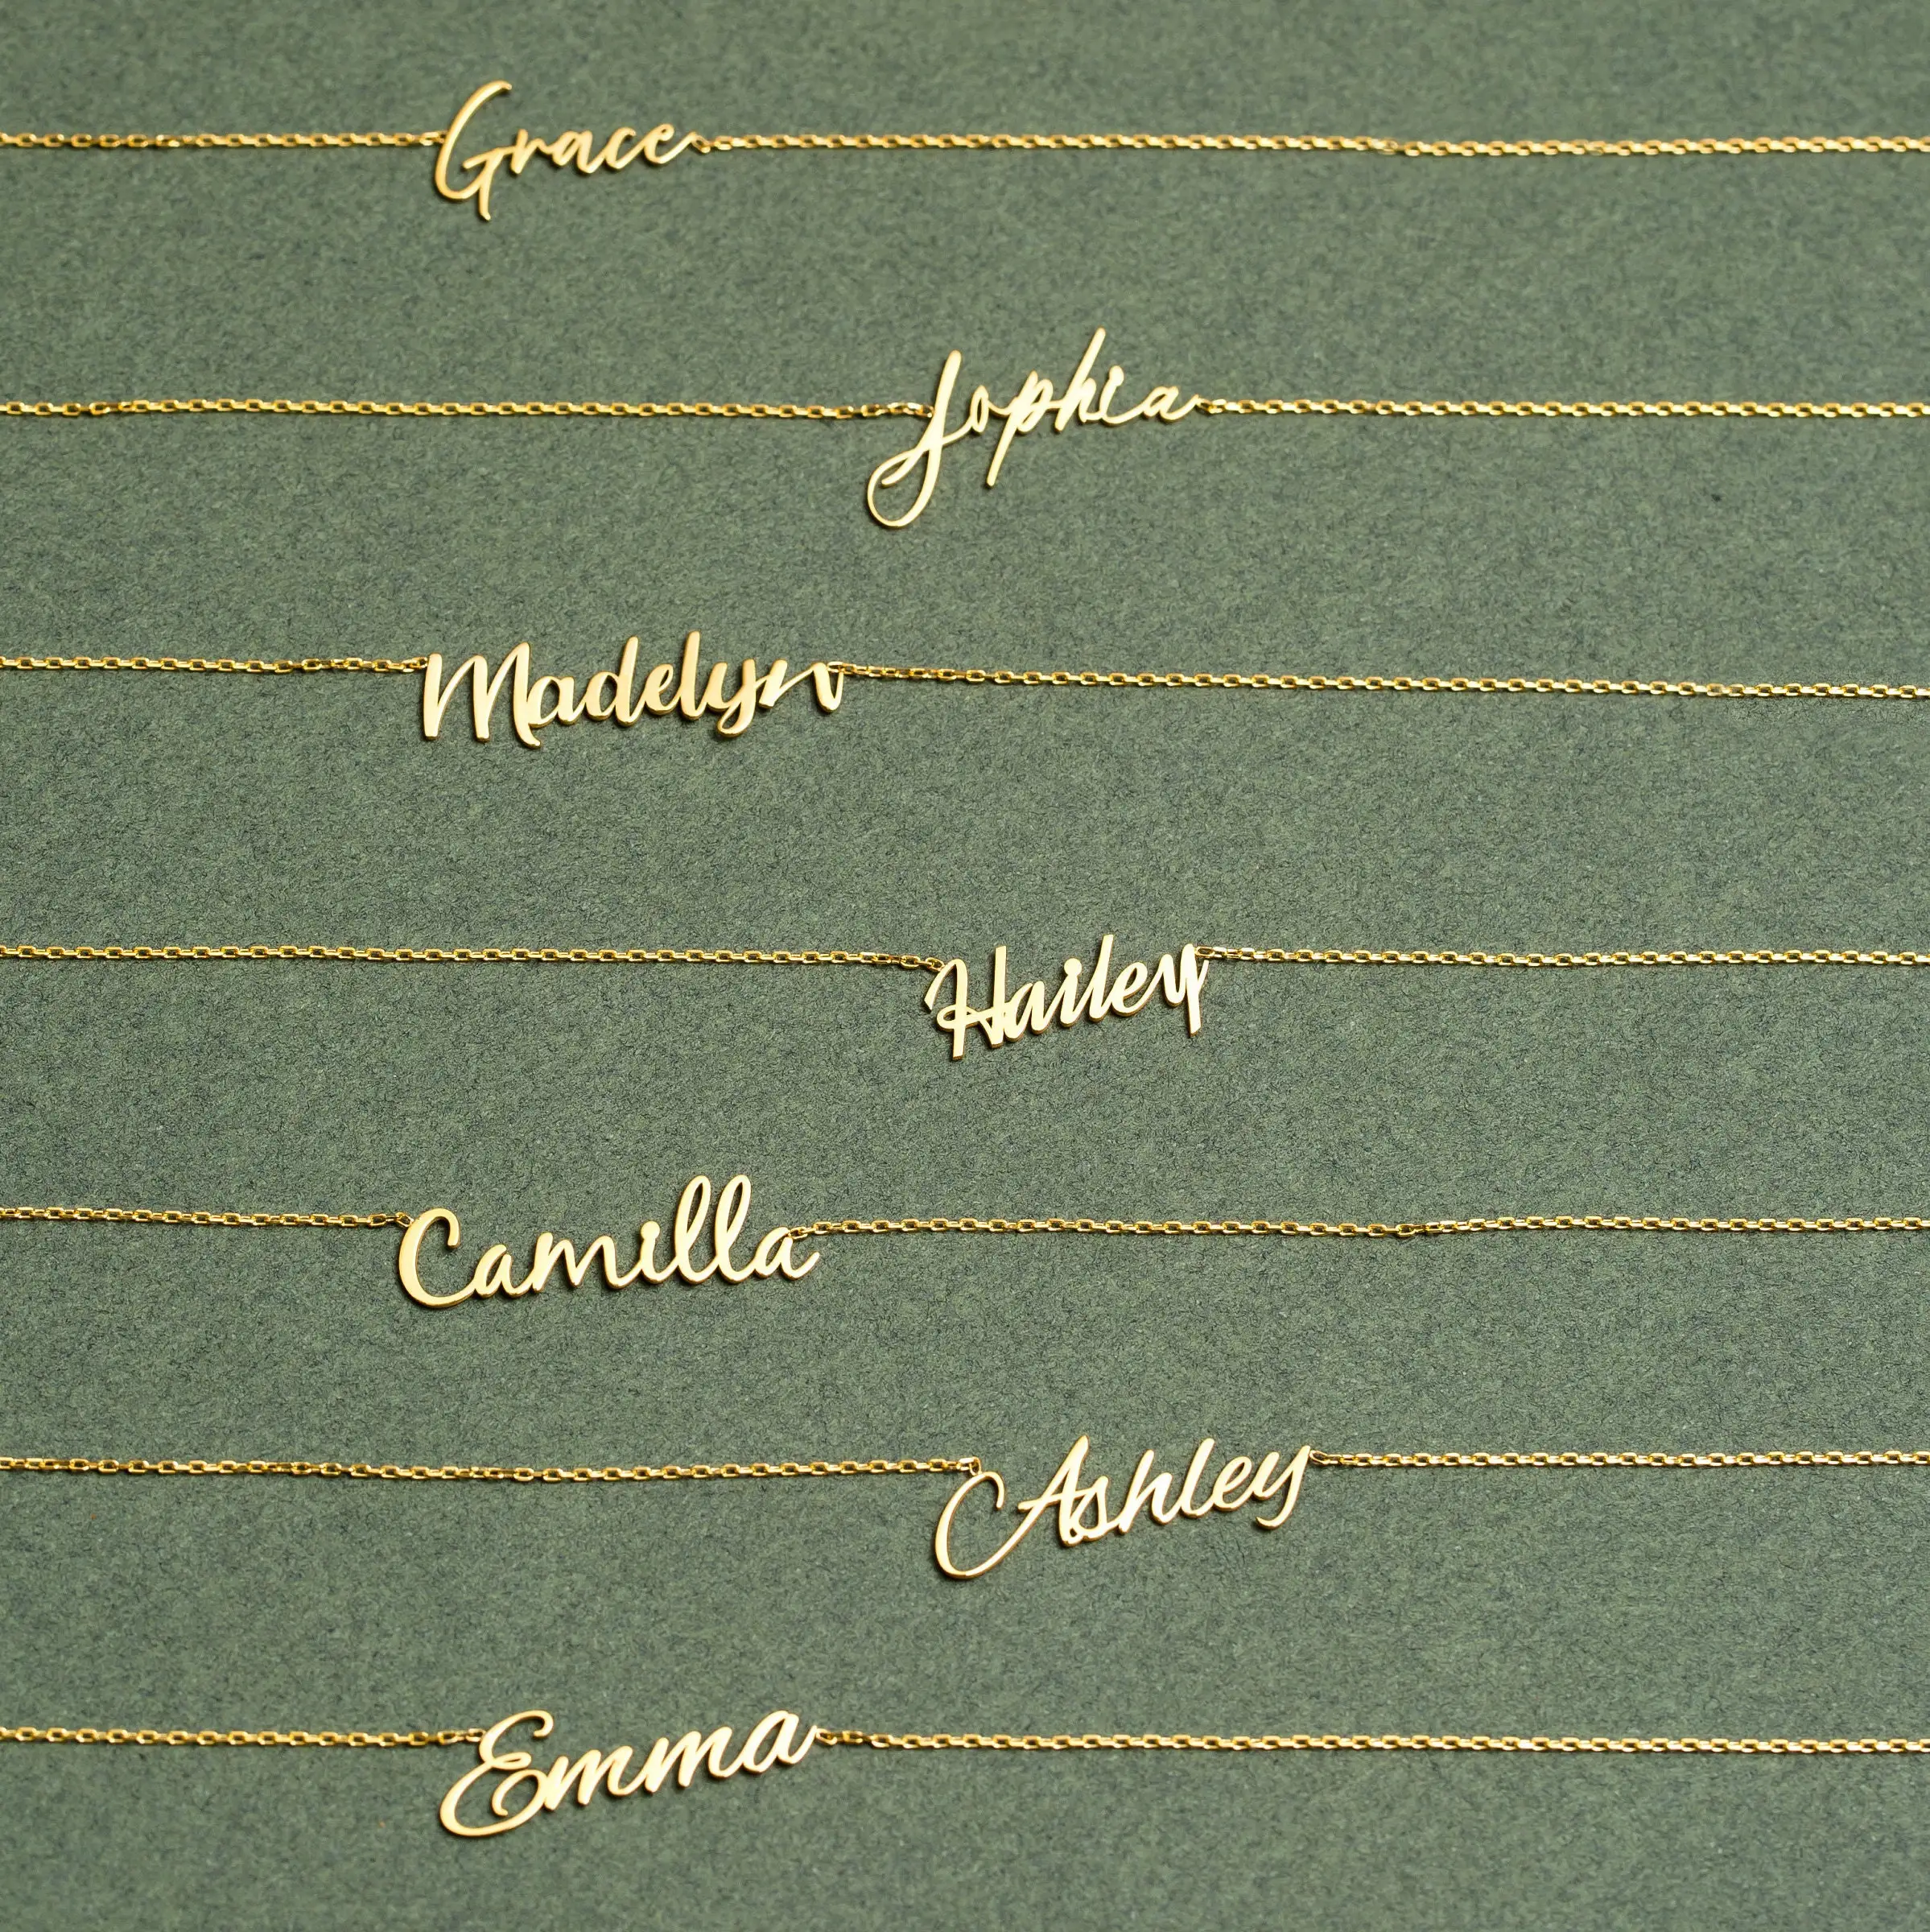 Grace
Sophia
Madelyn
Hailey
Camilla
Ashley
Emma